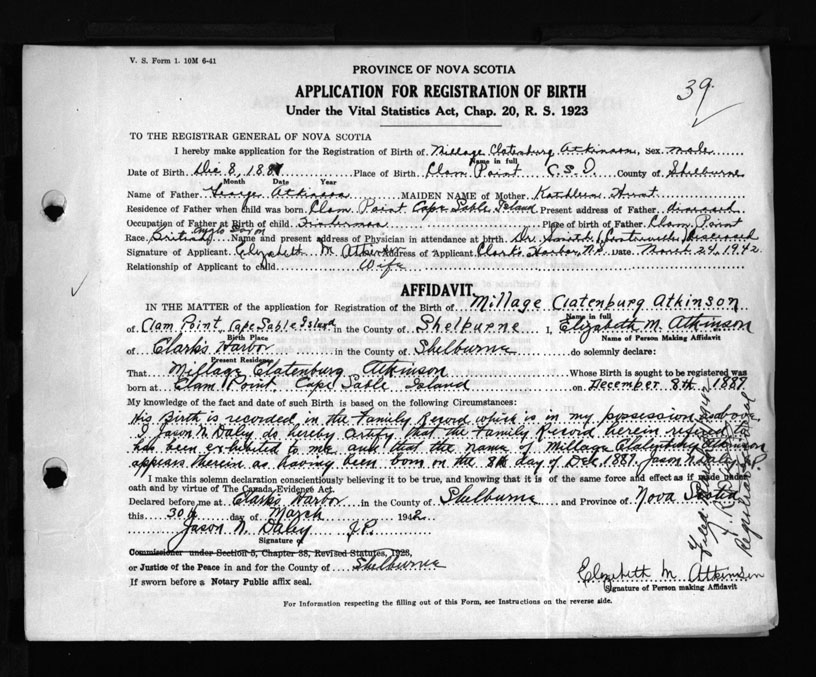 V. S. Form 1. 10M 6-41
39
PROVINCE OF NOVA SCOTIA
APPLICATION FOR REGISTRATION OF BIRTH
Under the Vital Statistics Act, Chap. 20, R. S. 1923
TO THE REGISTRAR GENERAL OF NOVA SCOTIA
I hereby make application for the Registration of Birth of Millage Clatenburg Atkinson, Sex male
Name in full
Date of Birth Dec 8, 1887 Place of Birth Clam Point C.S.I. County of Shelburne
Month Date Year
Name of Father George Atkinson MAIDEN NAME of Mother Kathleen
Residence of Father when child was born Clam Point Cape Sable Island Present address of Father deceased
Occupation of Father at Birth of child Fisherman Place of birth of Father Clam Point
Race British Anglo Saxon Name and present address of Physician in attendance at birth Dr. deceased
Signature of Applicant Elizabeth M Atkinson Address of Applicant Clark's Harbor, N.S. Date March 24, 1942
Relationship of Applicant to child Wife
AFFIDAVIT
IN THE MATTER of the application for Registration of the Birth of Millage Clatenburg Atkinson
Name in full
of Clam Point, Cape Sable Island in the County of Shelburne I, Elizabeth M. Atkinson
Birth Place Name of Person Making Affidavit
of Clark's Harbor in the County of Shelburne do solemnly declare:
Present Residence
That Millage Clatenburg Atkinson Whose Birth is sought to be registered was
born at Clam Point Cape Sable Island on December 8th 1887
My knowledge of the fact and date of such Birth is based on the following Circumstances:
His Birth is recorded in the Family Record which is in my possession above
I Jason N Daley do hereby certify that the Family Record herein refered to
has been exhibited to me and that the name of Millage Clatenburg Atkinson
appears therein as having been born on the 8th day of Dec. 1887. Jason N Daley J.P.
I make this solemn declaration conscientiously believing it to be true, and knowing that it is of the same force and effect as if made under
oath and by virtue of The Canada Evidence Act.
Declared before me at Clark's Harbor in the County of Shelburne and Province of Nova Scotia
this 30th day of March 1942
Jason N. Daley J.P.
Signature of
Commissioner under Section 5, Chapter 38, Revised Statutes, 1923,
or Justice of the Peace in and for the County of Shelburne
If sworn before a Notary Public affix seal.
Elizabeth M Atkinson
Signature of Person making Affidavit
For Information respecting the filling out of this Form, see Instructions on the reverse side.